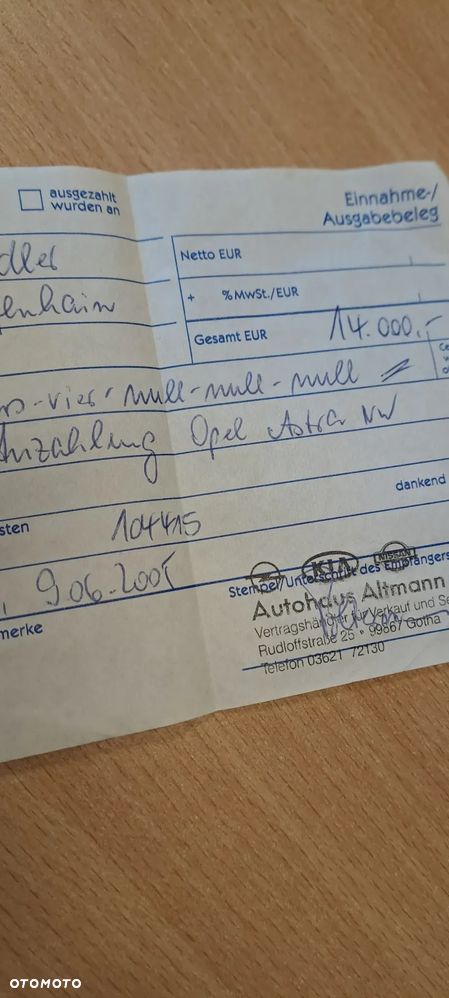 ausgezahlt
wurden an
Einnahme-/
Ausgabebeleg
dler
enhain
Netto EUR
+ %MwSt./EUR
Gesamt EUR 14.000,-
-vier-null-null-null
Anzahlung Opel Astra NW
dankend
sten 104415
9.06.2005
merke
KIA NISSAN
Stempel/Unterschrift des Empfängers
Autohaus Altmann
Vertragshändler für Verkauf und Se
Rudloffstraße 25 • 99867 Gotha
Telefon 03621 72130
OTOMOTO